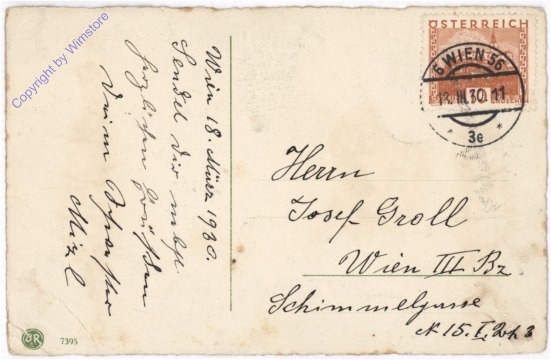 Copyright by Wimstore
Wien 18. März 1930.
Sendet Dir nebst
herzlichen Grüssen
Deine Schwester
Mizl
ÖSTERREICH
6 WIEN 56
18.III.30.11
* 3e *
GROSCHEN
Herrn
Josef Groll
Wien III Bz
Schimmelgasse
N 15. I.
BR
7395